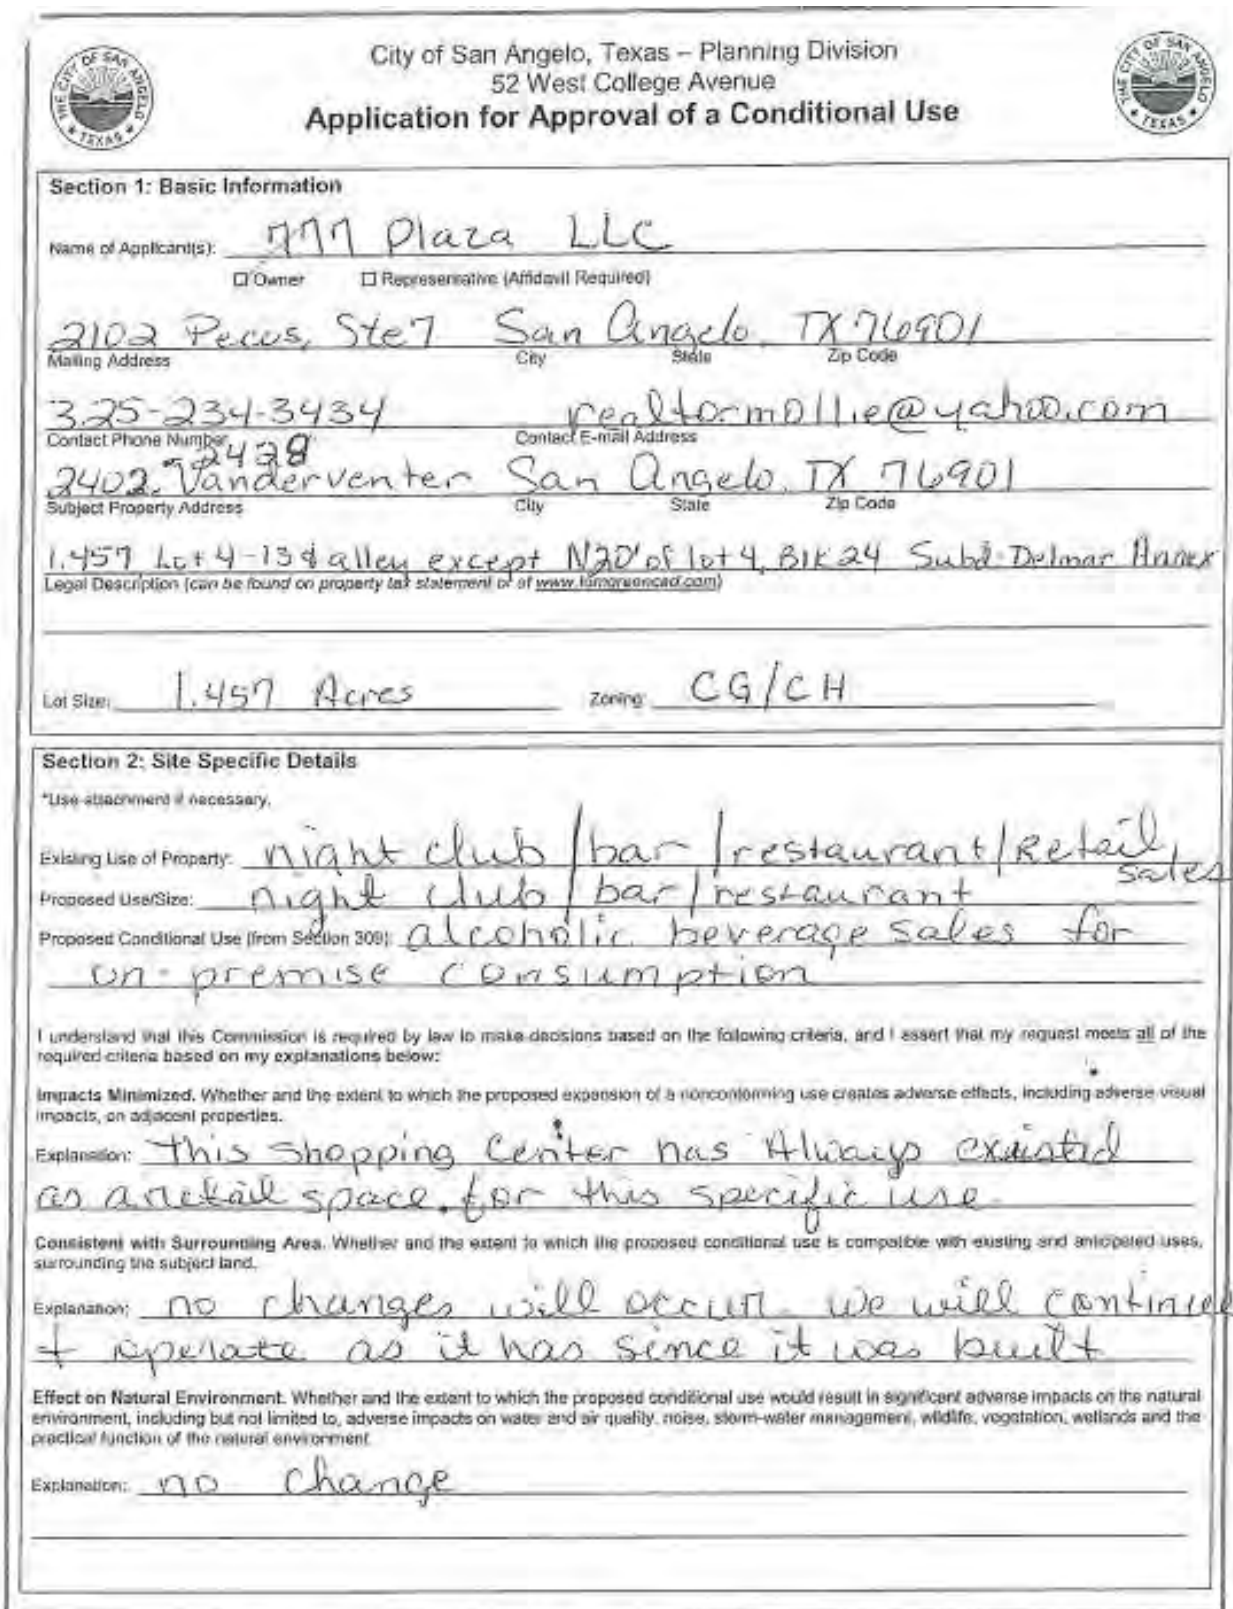 City of San Angelo, Texas – Planning Division
52 West College Avenue
Application for Approval of a Conditional Use
THE CITY OF SAN ANGELO
TEXAS
THE CITY OF SAN ANGELO
TEXAS
Section 1: Basic Information
Name of Applicant(s): 777 Plaza LLC
☐ Owner ☐ Representative (Affidavit Required)
2102 Pecos, Ste 7 San Angelo, TX 76901
Mailing Address City State Zip Code
325-234-3434 realtormollie@yahoo.com
Contact Phone Number Contact E-mail Address
- 2428
2402, Vanderventer San Angelo, TX 76901
Subject Property Address City State Zip Code
1.457 Lot 4-13 & alley except N20' of lot 4, Blk 24 Subd: Delmar Annex
Legal Description (can be found on property tax statement or at www.tomgreencad.com)
Lot Size: 1.457 Acres Zoning: CG/CH
Section 2: Site Specific Details
*Use attachment if necessary.
Existing Use of Property: night club/bar/restaurant/Retail,
sales
Proposed Use/Size: night club/bar/restaurant
Proposed Conditional Use (from Section 309): alcoholic beverage sales for
on-premise consumption
I understand that this Commission is required by law to make decisions based on the following criteria, and I assert that my request meets all of the
required criteria based on my explanations below:
Impacts Minimized. Whether and the extent to which the proposed expansion of a nonconforming use creates adverse effects, including adverse visual
impacts, on adjacent properties.
Explanation: This shopping Center has Always existed
as a retail space. for this specific use
Consistent with Surrounding Area. Whether and the extent to which the proposed conditional use is compatible with existing and anticipated uses,
surrounding the subject land.
Explanation: no changes will occur. We will continue
t operate as it has since it was built
Effect on Natural Environment. Whether and the extent to which the proposed conditional use would result in significant adverse impacts on the natural
environment, including but not limited to, adverse impacts on water and air quality, noise, storm-water management, wildlife, vegetation, wetlands and the
practical function of the natural environment.
Explanation: no change